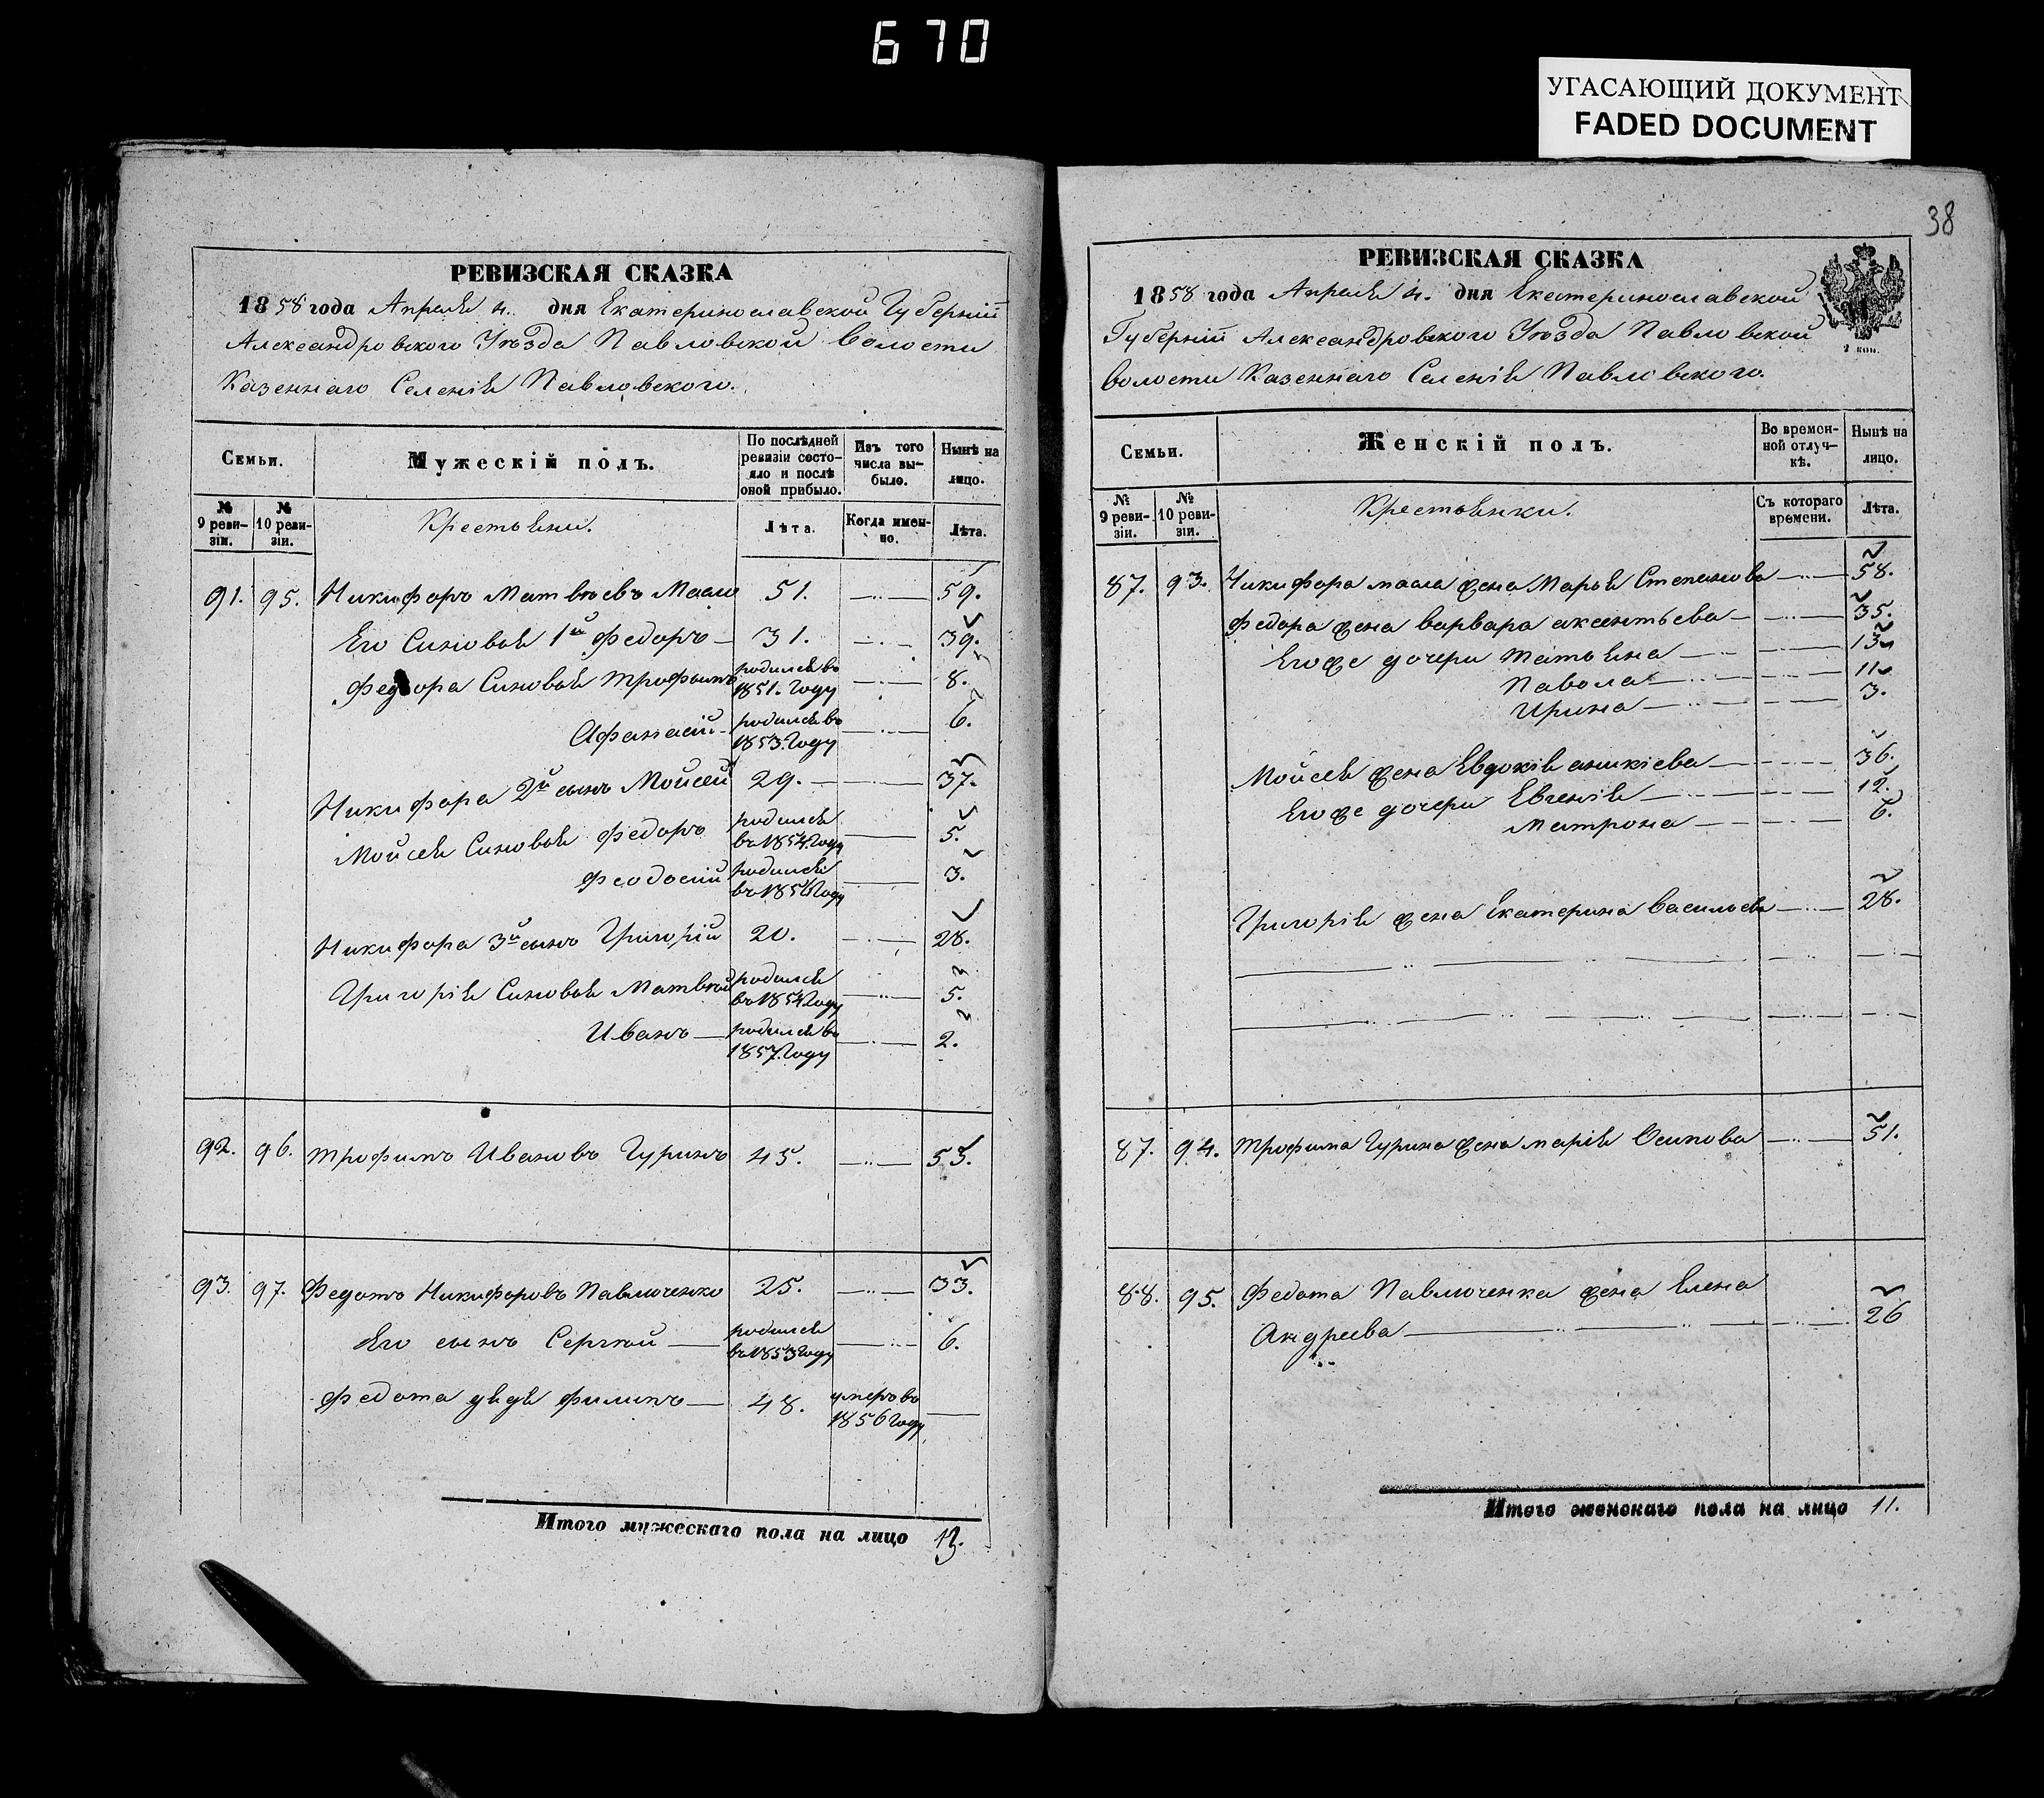 670
УГАСАЮЩИЙ ДОКУМЕНТ
FADED DOCUMENT
РЕВИЗСКАЯ СКАЗКА
1858 года Апреля 4. дня Екатеринославской Губерніи
Александровского Уѣзда Павловской волости
Казеннаго Селенія Павловского.
Семьи.
Мужескій полъ.
По послѣдней ревизіи состояло и послѣ оной прибыло.
Изъ того числа выбыло.
Нынѣ на лицо.
№ 9 ревизіи.
№ 10 ревизіи.
Крестьяни.
Лѣта.
Когда именно.
Лѣта.
91. 95. Никифоръ Матвѣевъ 51. 59.
Его Сыновья 1й Федоръ 31. 39.
Федора Сыновья Трофимъ родился въ 1851. году 8.
Афанасій родился въ 1853. году 6.
Никифора 2й сынъ Мойсей 29. 37.
Мойсея Сыновья Федоръ родился въ 1854. году 5.
Феодосій родился въ 1856 году 3.
Никифора 3й сынъ Григорій 20. 28.
Григорія Сыновья Матвѣй родился въ 1854 году 5.
Иванъ родился въ 1857. году 2.
92. 96. Трофимъ Ивановъ Гуринъ 45. 53.
93. 97. Федотъ Никифоровъ Павлюченко 25. 33.
Его сынъ Сергѣй родился въ 1853 году 6.
Федота дядя Филипъ 48. умеръ въ 1856 году
Итого мужескаго пола на лицо 13.
38
РЕВИЗСКАЯ СКАЗКА
1858 года Апреля 4. дня Екатеринославской
Губерніи Александровского Уѣзда Павловской
волости Казеннаго Селенія Павловского.
2 коп.
Семьи.
Женскій полъ.
Во временной отлучкѣ.
Нынѣ на лицо.
№ 9 ревизіи.
№ 10 ревизіи.
Крестьянки.
Съ котораго времени.
Лѣта.
87. 93. Никифора жена Марья Степанова 58.
Федора жена Варвара аксентьева 35.
Его же дочери Татьяна 13
Павола 11
Ирина 3.
Мойсея жена Евдокія аникіева 36.
Его же дочери Евгенія 12.
Матрона 6.
Григорія жена Екатерина Васильева 28.
87. 94. Трофима Гурина жена марія Осипова 51.
88. 95. Федота Павлюченка жена Елена
Андреева 26
Итого женскаго пола на лицо 11.